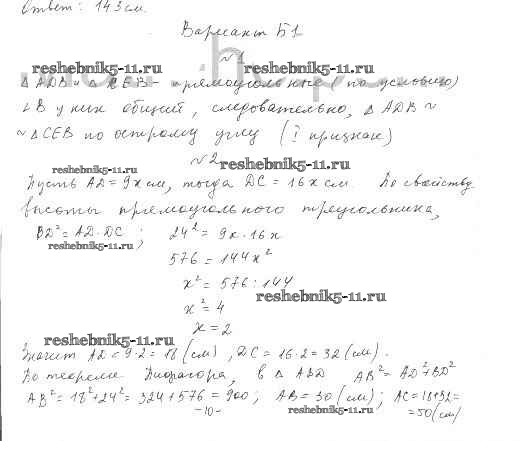 Ответ: 143 см.
Вариант Б1
№1
reshebnik5-11.ru
△ ADB и △ CEB – прямоугольные (по условию)
∠B у них общий, следовательно, △ ADB ~
~ △CEB по острому углу (I признак)
№2
reshebnik5-11.ru
reshebnik5-11.ru
Пусть AD = 9x см, тогда DC = 16x см. По свойству
высоты прямоугольного треугольника,
BD² = AD·DC ; 24² = 9x·16x
reshebnik5-11.ru
576 = 144x²
x² = 576 : 144
reshebnik5-11.ru
x² = 4
x = 2
reshebnik5-11.ru
Значит AD = 9·2 = 18 (см), DC = 16·2 = 32 (см).
По теореме Пифагора, в △ ABD AB² = AD²+BD²
AB² = 18²+24² = 324+576 = 900; AB = 30 (см); AC = 18+32=
=50 (см)
reshebnik5-11.ru
-10-